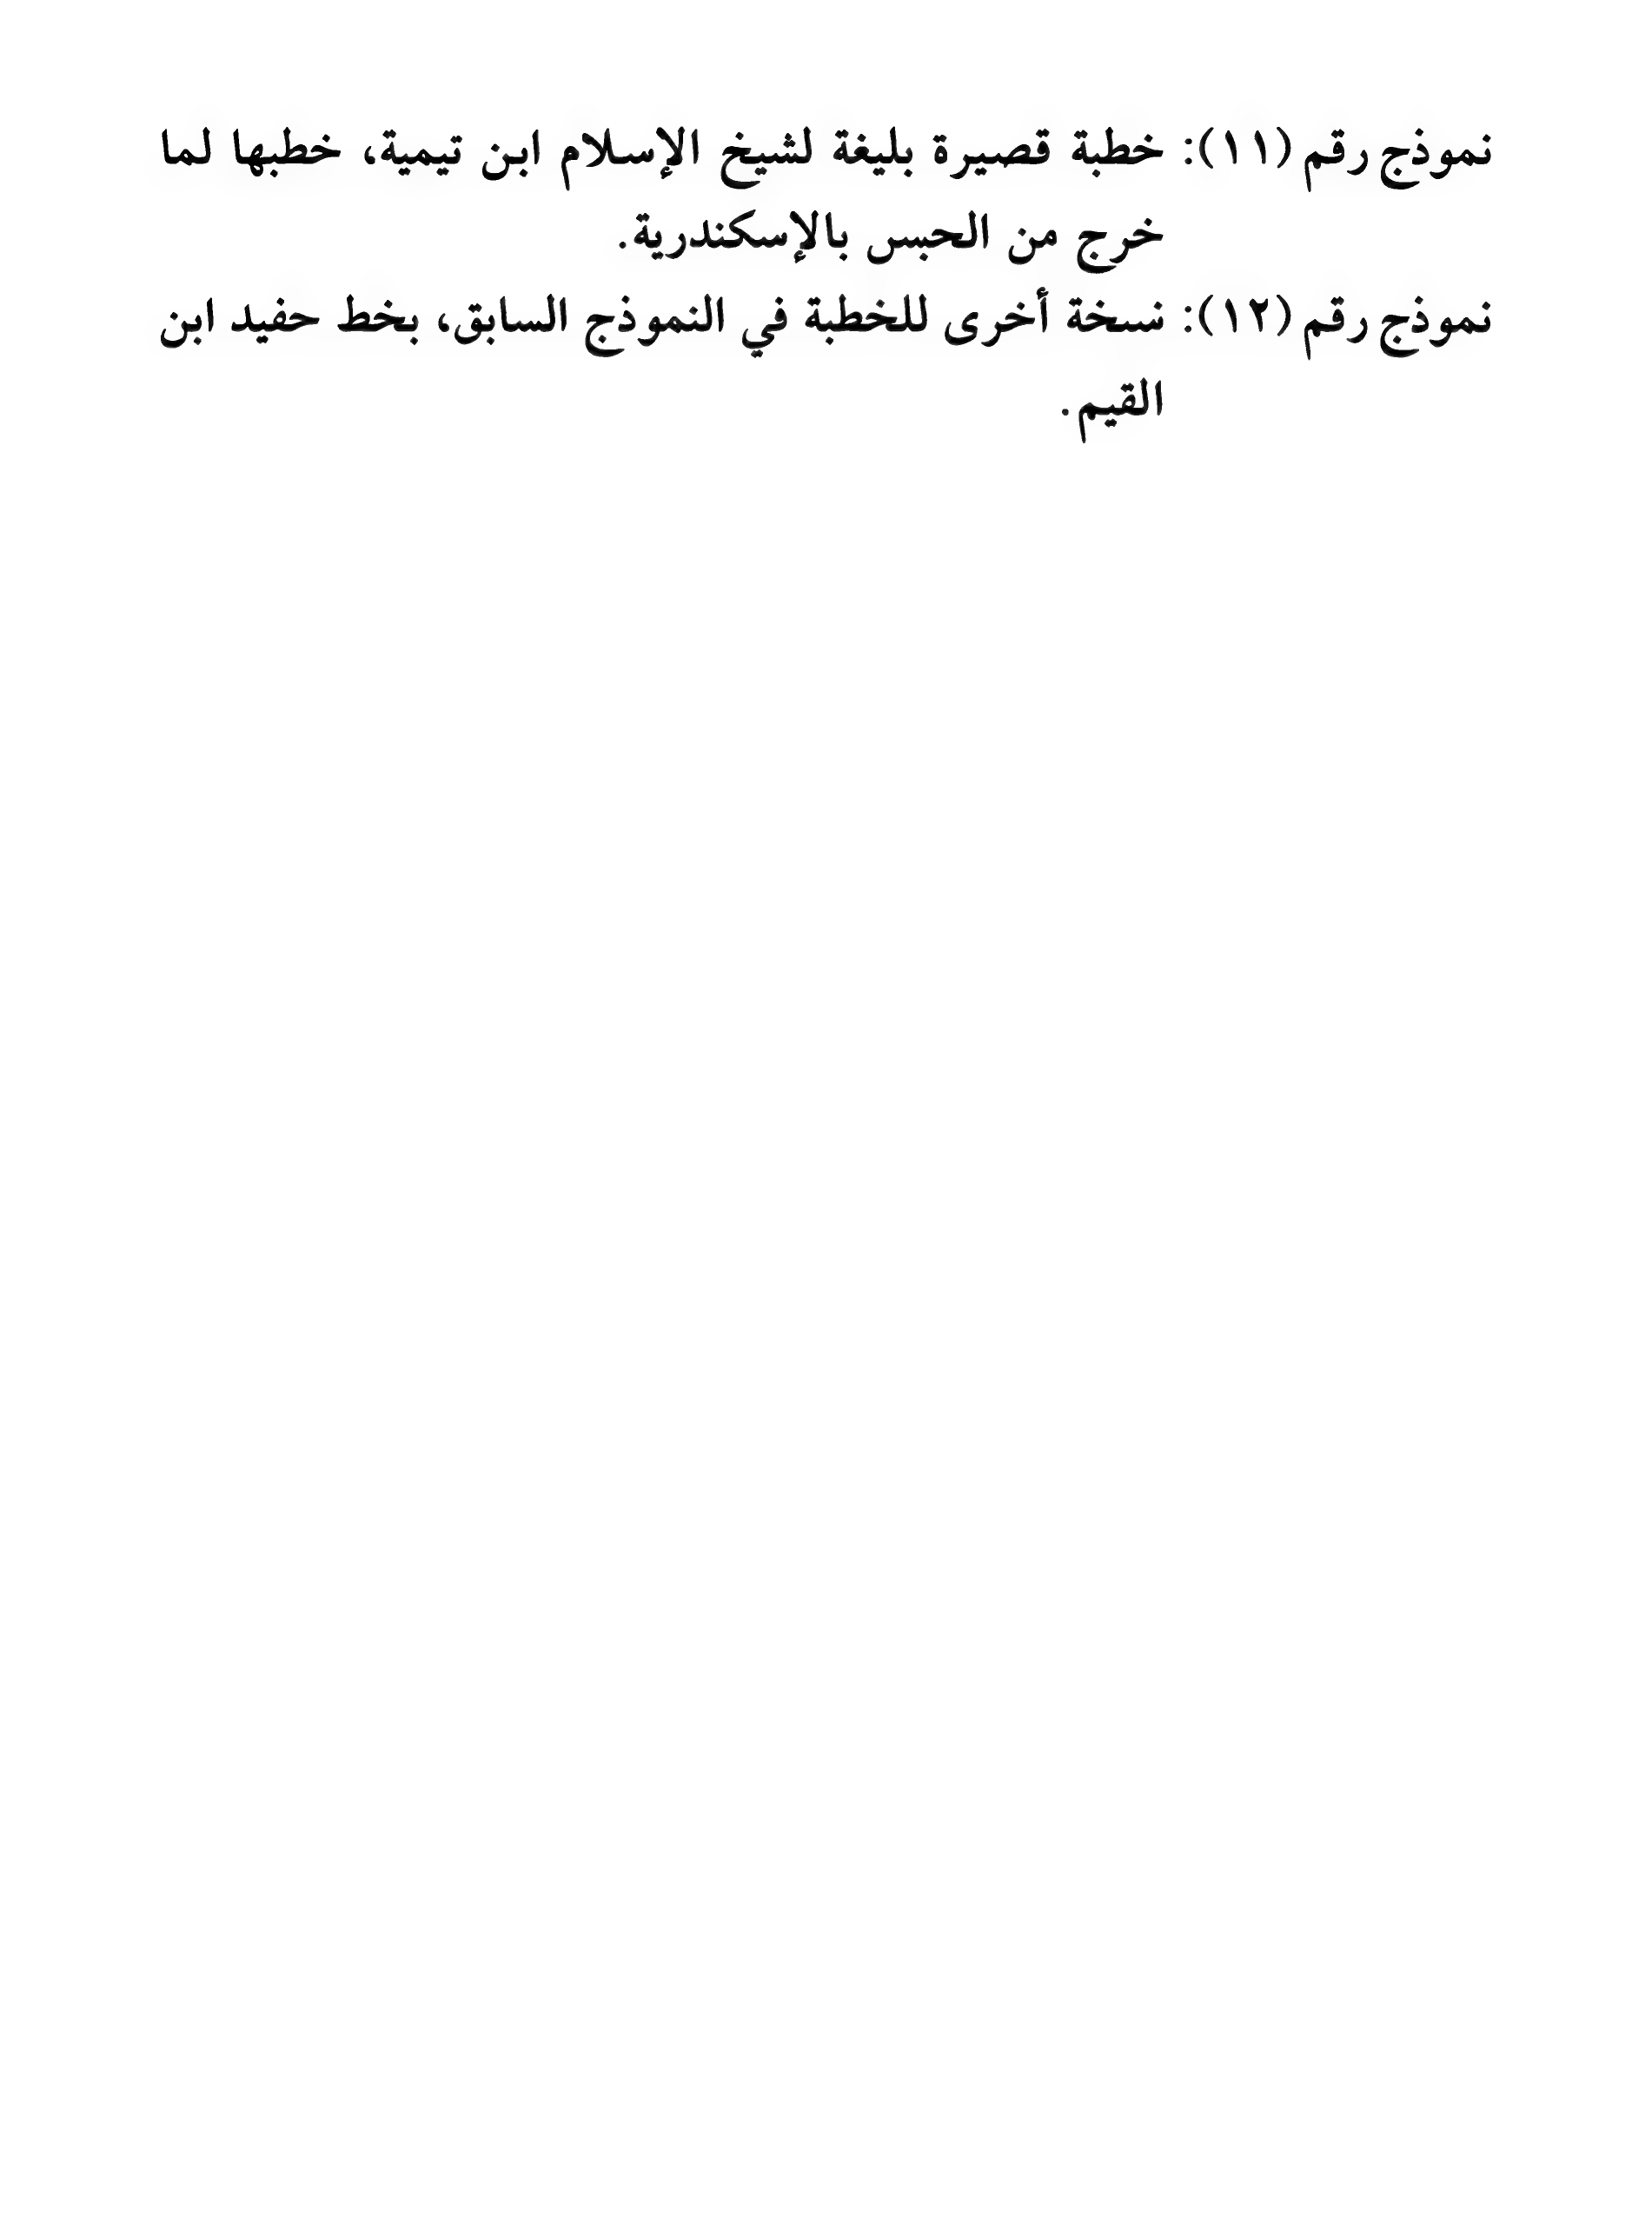 نموذج رقم (١١): خطبة قصيرة بليغة لشيخ الإسلام ابن تيمية، خطبها لما
خرج من الحبس بالإسكندرية.
نموذج رقم (١٢): نسخة أخرى للخطبة في النموذج السابق، بخط حفيد ابن
القيم.